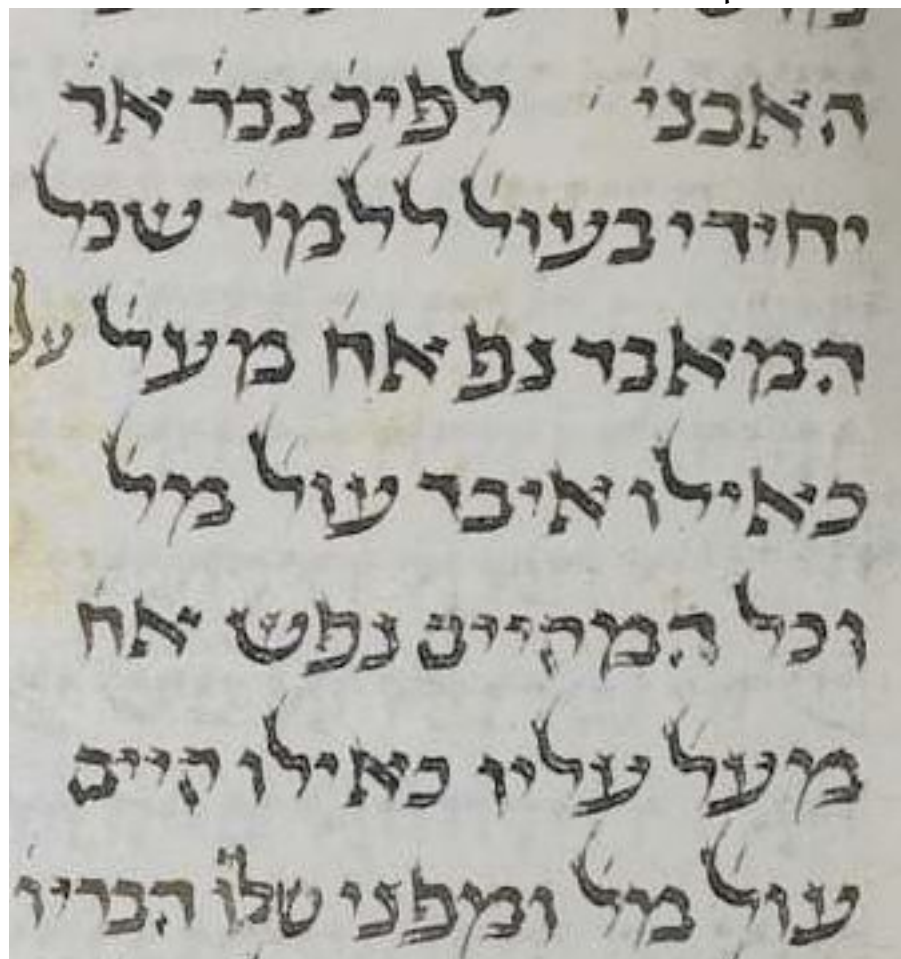 האבני׳ לפיכ׳ נבר׳ אד׳
יחידי בעול׳ ללמד׳ שכל
המאבד נפ׳ אח׳ מעל׳ על
כאילו איבד עול׳ מל׳
וכל המקיים נפש אח׳
מעל׳ עליו כאילו קיים
עול׳ מל׳ ומפני שלו׳ הבריו׳